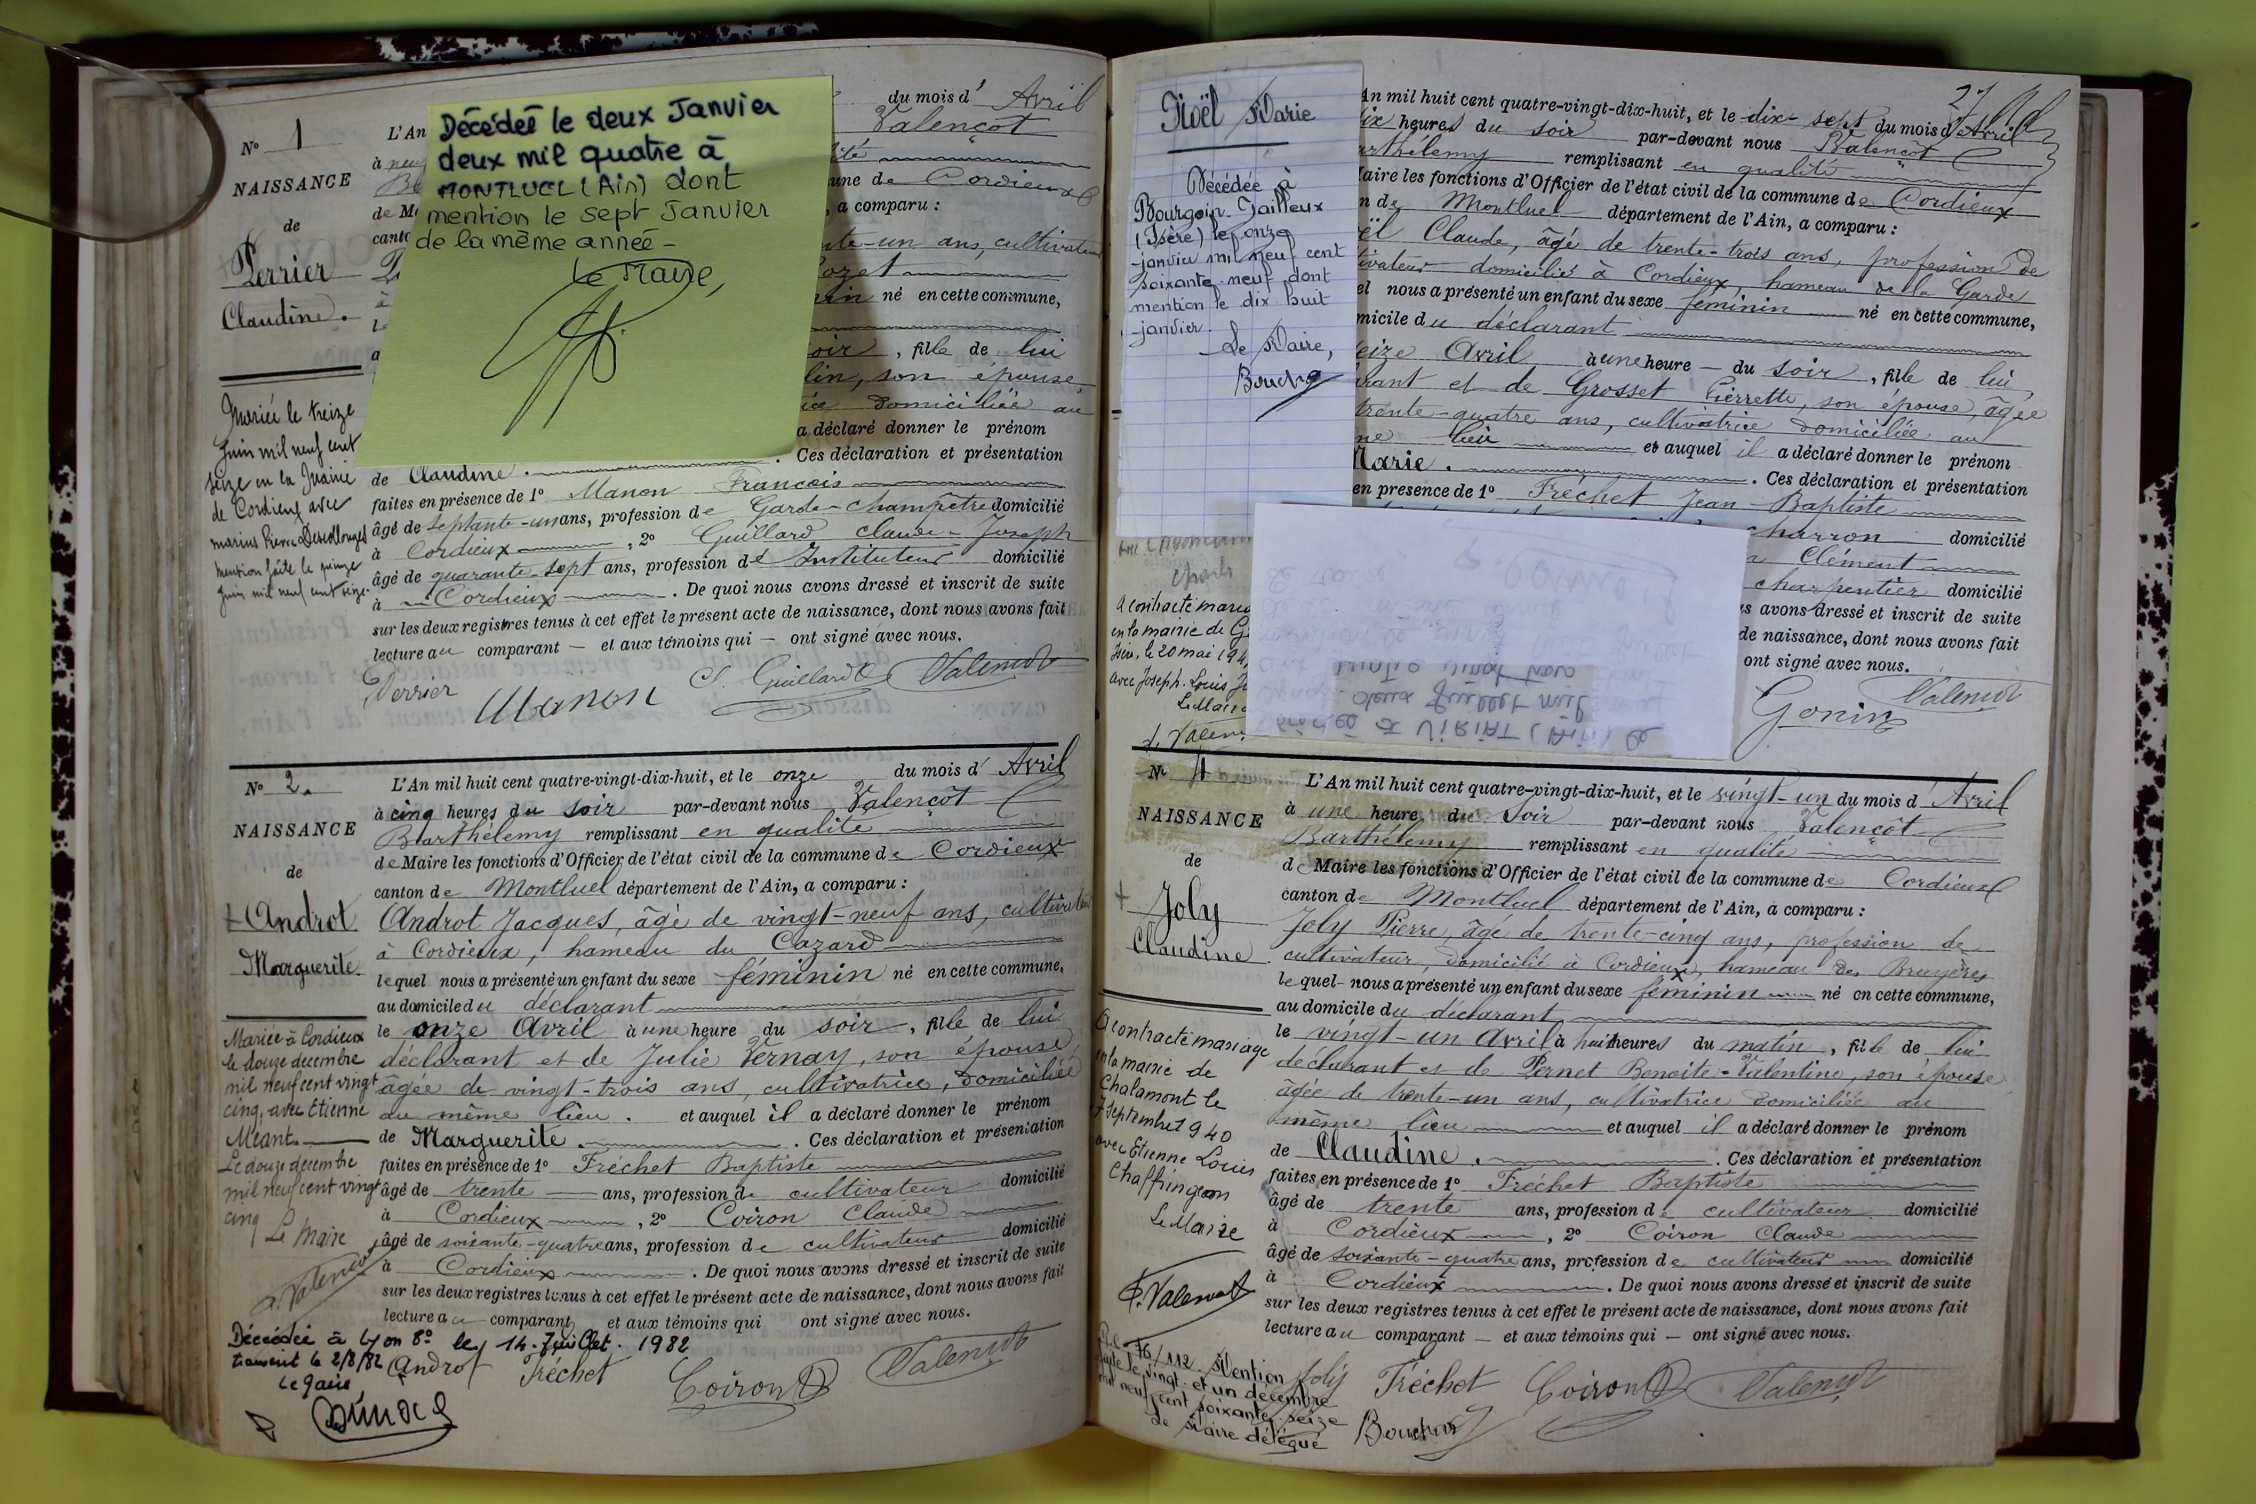 N° 1
NAISSANCE
de
Perrier
Claudine.
Mariée le treize
Juin mil neuf cent
seize en la Mairie
de Cordieux avec
mention faite le quinze
Juin mil neuf cent seize.
Décédée le deux Janvier
deux mil quatre à
MONTLUEL (Ain) dont
mention le sept Janvier
de la même année -
Le Maire,
L'An
du mois d' Avril
Valençot
à
une de Cordieux
de M
, a comparu :
cant
nte-un ans, cultivateur
né en cette commune,
soir, fille de lui
lin, son épouse,
domiciliée au
a déclaré donner le prénom
de Claudine. . Ces déclaration et présentation
faites en présence de 1° Manon François
âgé de septante-un ans, profession de Garde-champêtre domicilié
à Cordieux , 2° Guillard Claude-Joseph
âgé de quarante-sept ans, profession de Instituteur domicilié
à Cordieux . De quoi nous avons dressé et inscrit de suite
sur les deux registres tenus à cet effet le présent acte de naissance, dont nous avons fait
lecture au comparant — et aux témoins qui — ont signé avec nous.
Perrier Manon Guillard Valençot
N° 2.
NAISSANCE
de
+ Androt
Marguerite.
Mariée à Cordieux
le douze decembre
mil neuf cent vingt
cinq, avec Etienne
Méant.
Le douze decembre
mil neuf cent vingt
cinq
Le Maire
Valençot
L'An mil huit cent quatre-vingt-dix-huit, et le onze du mois d' Avril
à cinq heures du soir par-devant nous Valençot
Barthélemy remplissant en qualité
de Maire les fonctions d'Officier de l'état civil de la commune de Cordieux
canton de Montluel département de l'Ain, a comparu :
Androt Jacques, âgé de vingt-neuf ans, cultivateur
à Cordieux, hameau du Cazard
lequel nous a présenté un enfant du sexe féminin né en cette commune,
au domicile du déclarant
le onze Avril à une heure du soir, fille de lui
déclarant et de Julie Vernay, son épouse,
âgée de vingt-trois ans, cultivatrice, domiciliée
au même lieu. et auquel il a déclaré donner le prénom
de Marguerite. . Ces déclaration et présentation
faites en présence de 1° Fréchet Baptiste
âgé de trente ans, profession de cultivateur domicilié
à Cordieux , 2° Coiron Claude
âgé de soixante-quatre ans, profession de cultivateur domicilié
à Cordieux . De quoi nous avons dressé et inscrit de suite
sur les deux registres tenus à cet effet le présent acte de naissance, dont nous avons fait
lecture au comparant et aux témoins qui ont signé avec nous.
Décédée à Lyon 8° le 14 Juillet 1982
transcrit le 2/8/82
Le Maire
Androt Fréchet Coiron Valençot
27
Noël Marie
Décédée à
Bourgoin-Jailleux
(Isère) le onze
janvier mil neuf cent
soixante-neuf dont
mention le dix huit
janvier.
Le Maire,
An mil huit cent quatre-vingt-dix-huit, et le dix-sept du mois d'Avril
dix heures du soir par-devant nous Valençot
arthélemy remplissant en qualité
Maire les fonctions d'Officier de l'état civil de la commune de Cordieux
n de Montluel département de l'Ain, a comparu :
ël Claude, âgé de trente-trois ans, profession de
tivateur domicilié à Cordieux, hameau de la Garde
el nous a présenté un enfant du sexe féminin né en cette commune,
micile du déclarant
seize Avril à une heure — du soir, fille de lui
arant et de Grosset Pierrette, son épouse, âgée
trente-quatre ans, cultivatrice domiciliée au
me lieu et auquel il a déclaré donner le prénom
Marie. . Ces déclaration et présentation
en présence de 1° Fréchet Jean-Baptiste
charron domicilié
Clément
charpentier domicilié
us avons dressé et inscrit de suite
de naissance, dont nous avons fait
ont signé avec nous.
Gonin Valençot
A contracté maria
en la mairie de G
Isère, le 20 mai 194
avec Joseph-Louis
Le Maire
N° 4
NAISSANCE
de
+ Joly
Claudine
A contracté mariage
en la mairie de
Chalamont le
7 septembre 1940
avec Etienne Louis
Chaffringeon
Le Maire
Valençot
L'An mil huit cent quatre-vingt-dix-huit, et le vingt-un du mois d' Avril
à une heure du Soir par-devant nous Valençot
Barthélemy remplissant en qualité
de Maire les fonctions d'Officier de l'état civil de la commune de Cordieux
canton de Montluel département de l'Ain, a comparu :
Joly Pierre, âgé de trente-cinq ans, profession de
cultivateur, domicilié à Cordieux, hameau des Bruyères
lequel nous a présenté un enfant du sexe féminin né en cette commune,
au domicile du déclarant
le vingt-un Avril à huit heures du matin, fille de lui
déclarant et de Pernet Benoîte-Valentine, son épouse
âgée de trente-un ans, cultivatrice domiciliée au
même lieu et auquel il a déclaré donner le prénom
de Claudine. . Ces déclaration et présentation
faites en présence de 1° Fréchet Baptiste
âgé de trente ans, profession de cultivateur domicilié
à Cordieux , 2° Coiron Claude
âgé de soixante-quatre ans, profession de cultivateur domicilié
à Cordieux . De quoi nous avons dressé et inscrit de suite
sur les deux registres tenus à cet effet le présent acte de naissance, dont nous avons fait
lecture au comparant — et aux témoins qui — ont signé avec nous.
76/112 Mention
faite le vingt-et un décembre
mil neuf cent soixante-seize
Le Maire délégué
Joly Fréchet Coiron Valençot